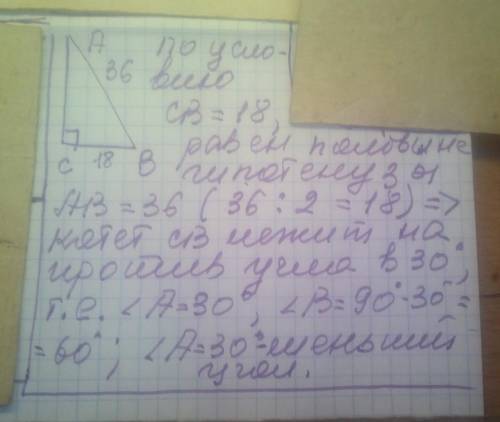 A
36
C
18
B
по усло-
вию
СВ = 18,
равен половине
гипотенузы
АВ = 36 ( 36 : 2 = 18) =>
катет СВ лежит на
против угла в 30°,
т.е. ∠А = 30°, ∠В = 90°-30° =
= 60°; ∠А = 30°-меньший
угол.